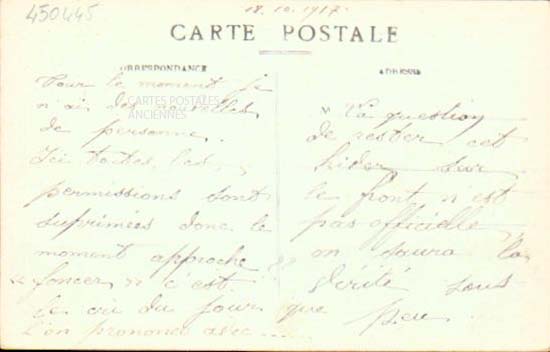 450445
18.10.1917
CARTE POSTALE
CORRESPONDANCE
ADRESSE
CARTES POSTALES
ANCIENNES
Pour le moment je
n'ai des nouvelles
de personne.
Ici toutes les
permissions sont
suprimées donc le
moment approche
"foncer" c'est
le cri du jour que
l'on prononce avec ....
La question
de rester cet
hider sur
le front n'est
pas officielle
on saura la
vérité sous
peu.